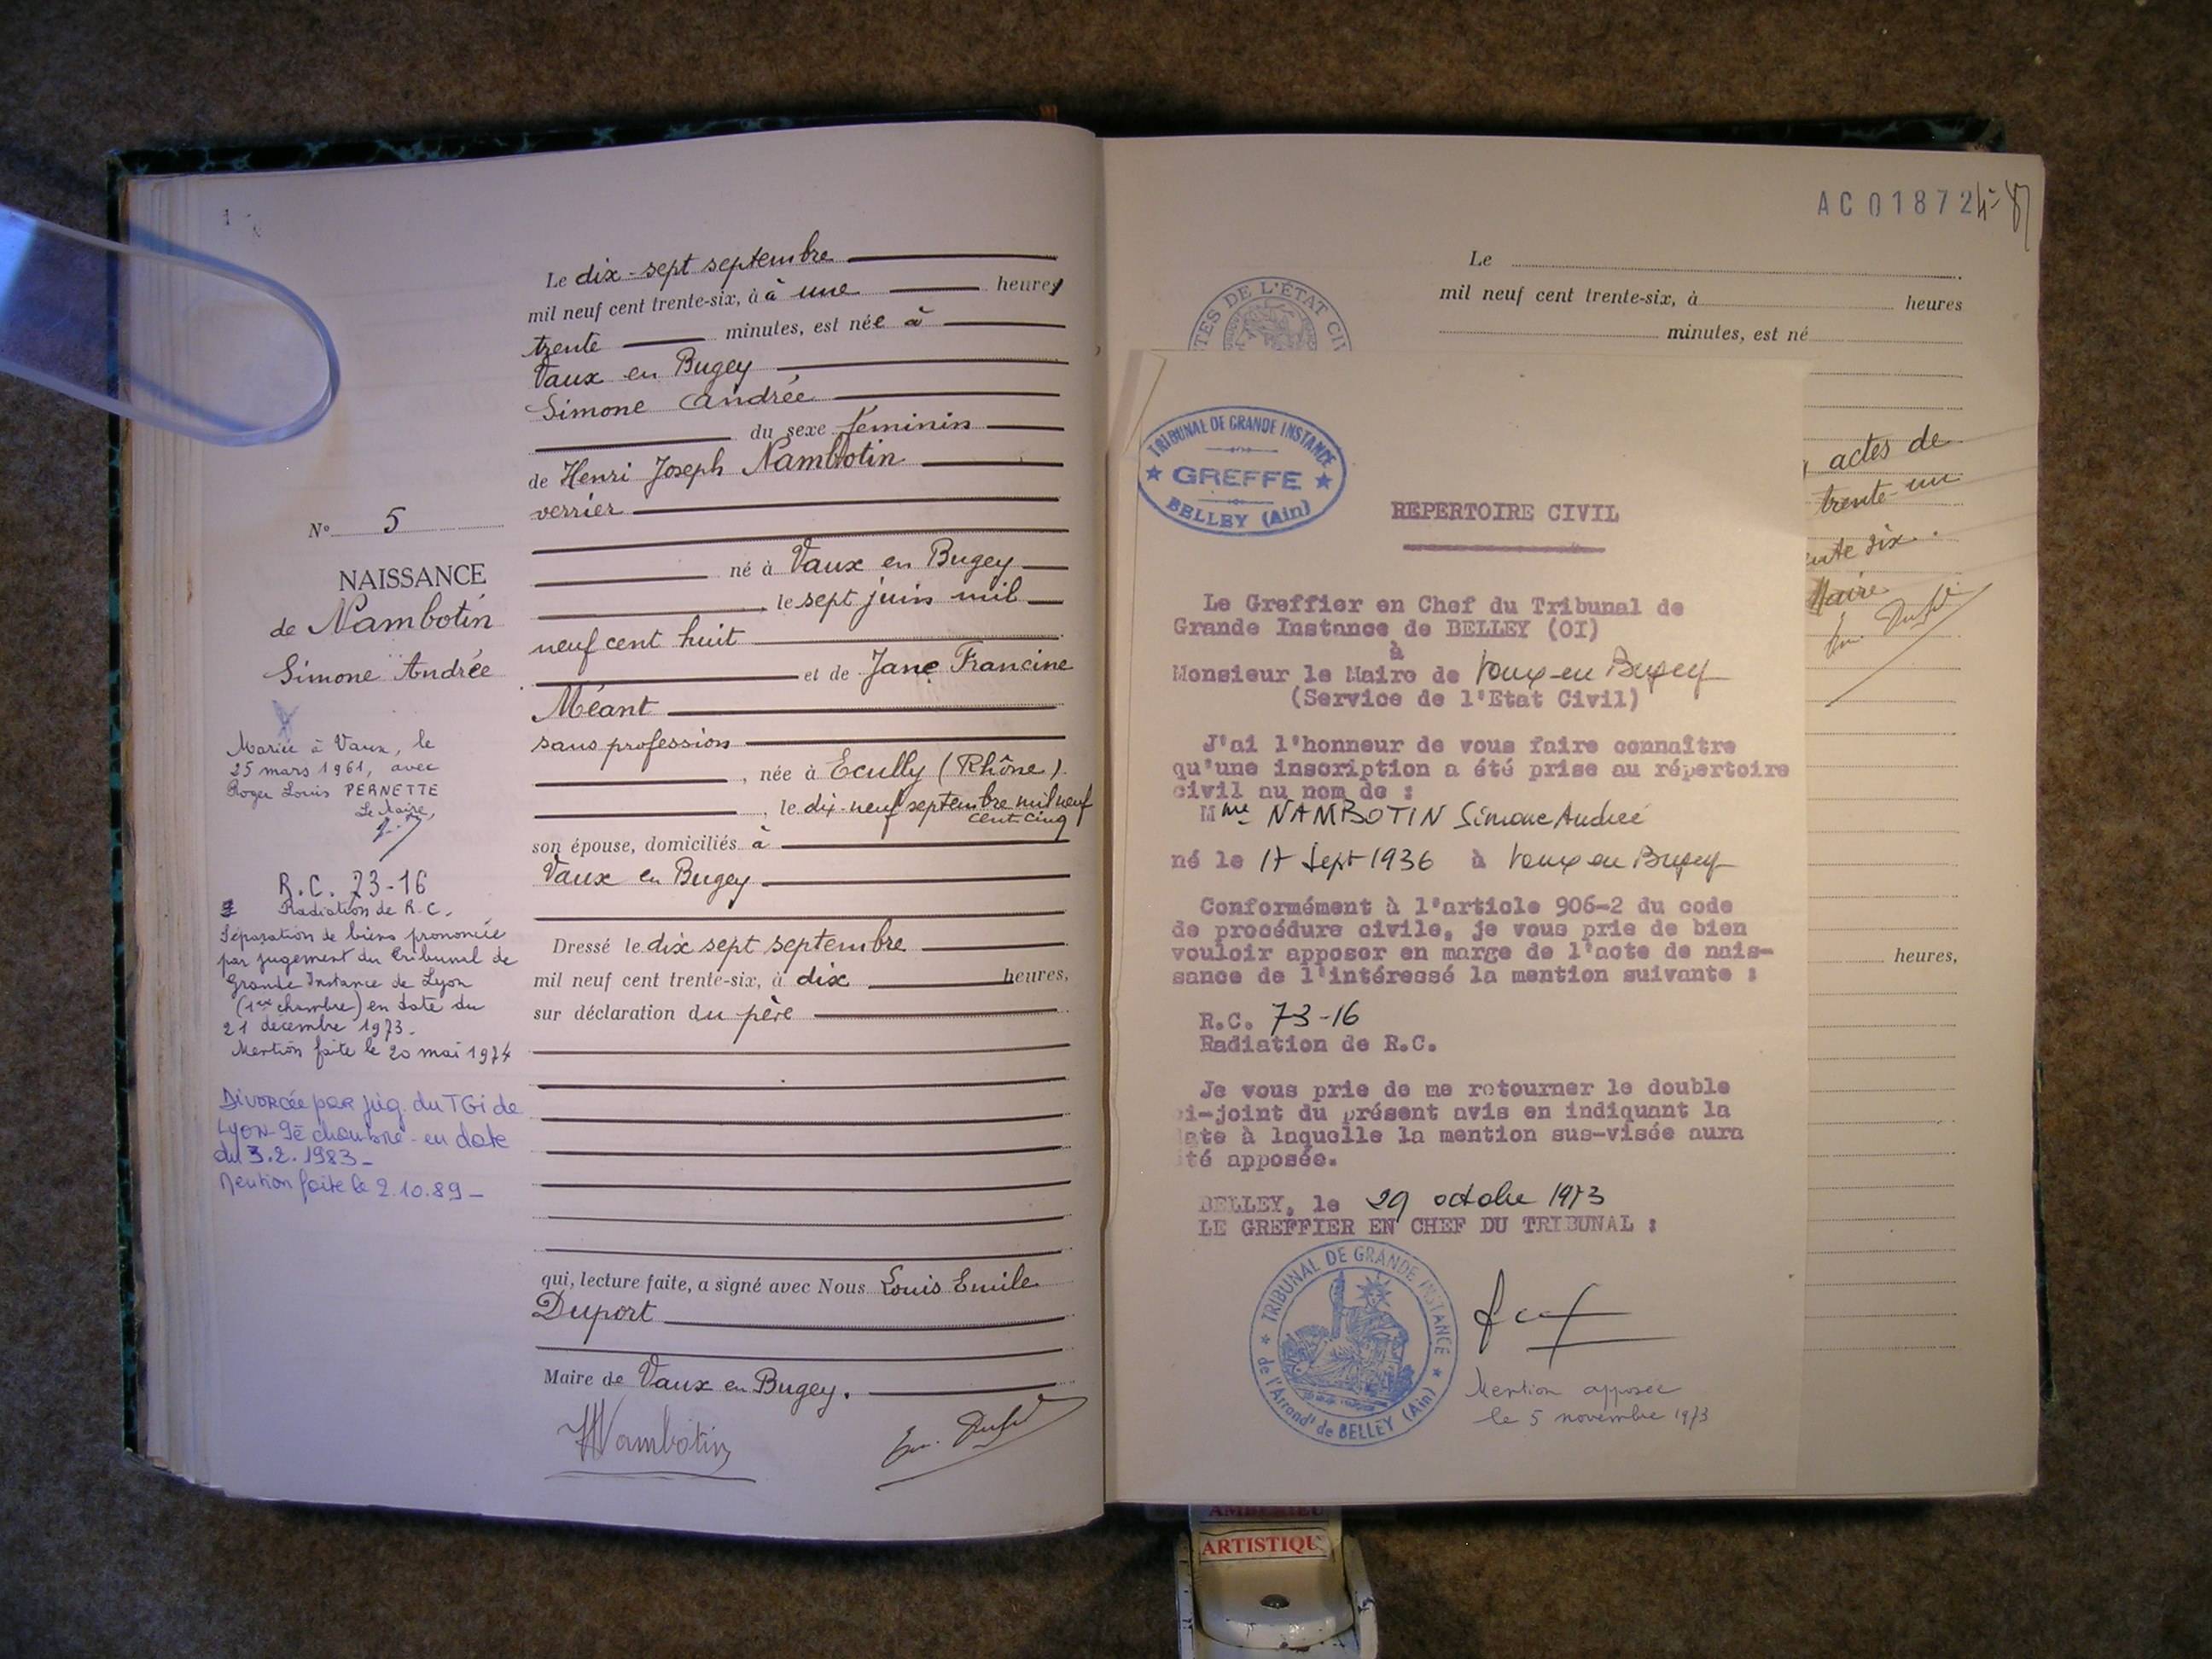 Le dix-sept septembre
mil neuf cent trente-six, à à une heures
trente minutes, est née à
Vaux en Bugey
Simone Andrée
du sexe féminin
de Henri Joseph Nambotin
verrier
né à Vaux en Bugey
le sept juin mil
neuf cent huit
et de Jane Francine
Méant
sans profession
, née à Ecully (Rhône)
, le dix-neuf septembre mil neuf
cent cinq
son épouse, domiciliés à
Vaux en Bugey
Dressé le dix sept septembre
mil neuf cent trente-six, à dix heures,
sur déclaration du père
qui, lecture faite, a signé avec Nous Louis Emile
Duport
Maire de Vaux en Bugey.
HNambotin
N° 5
NAISSANCE
de Nambotin
Simone Andrée
Mariée à Vaux, le
25 mars 1961, avec
Roger Louis PERNETTE
Le Maire,
R.C. 73-16
Radiation de R.C.
Séparation de biens prononcée
par jugement du Tribunal de
Grande Instance de Lyon
(1ère chambre) en date du
21 décembre 1973.
Mention faite le 20 mai 1974
Divorcée par jug. du TGi de
LYON- 9è chambre - en date
du 3.2.1983 -
Mention faite le 2.10.89 -
AC 01872
Le
mil neuf cent trente-six, à heures
minutes, est né
TES DE L'ÉTAT CIV
actes de
trente-un
ente six.
Maire
heures,
TRIBUNAL DE GRANDE INSTANCE
★ GREFFE ★
BELLEY (Ain)
REPERTOIRE CIVIL
Le Greffier en Chef du Tribunal de
Grande Instance de BELLEY (OI)
à
Monsieur le Maire de Vaux-en Bugey
(Service de l'Etat Civil)
J'ai l'honneur de vous faire connaître
qu'une inscription a été prise au répertoire
civil au nom de :
Mme NAMBOTIN Simone Andrée
né le 17 Sept 1936 à Vaux en Bugey
Conformément à l'article 906-2 du code
de procédure civile, je vous prie de bien
vouloir apposer en marge de l'acte de nais-
sance de l'intéressé la mention suivante :
R.C. 73-16
Radiation de R.C.
Je vous prie de me retourner le double
i-joint du présent avis en indiquant la
ate à laquelle la mention sus-visée aura
té apposée.
BELLEY, le 29 octobre 1973
LE GREFFIER EN CHEF DU TRIBUNAL :
★ TRIBUNAL DE GRANDE INSTANCE ★
de l'Arrondt de BELLEY (Ain)
Mention apposée
le 5 novembre 1973
AMBERIEU
ARTISTIQU